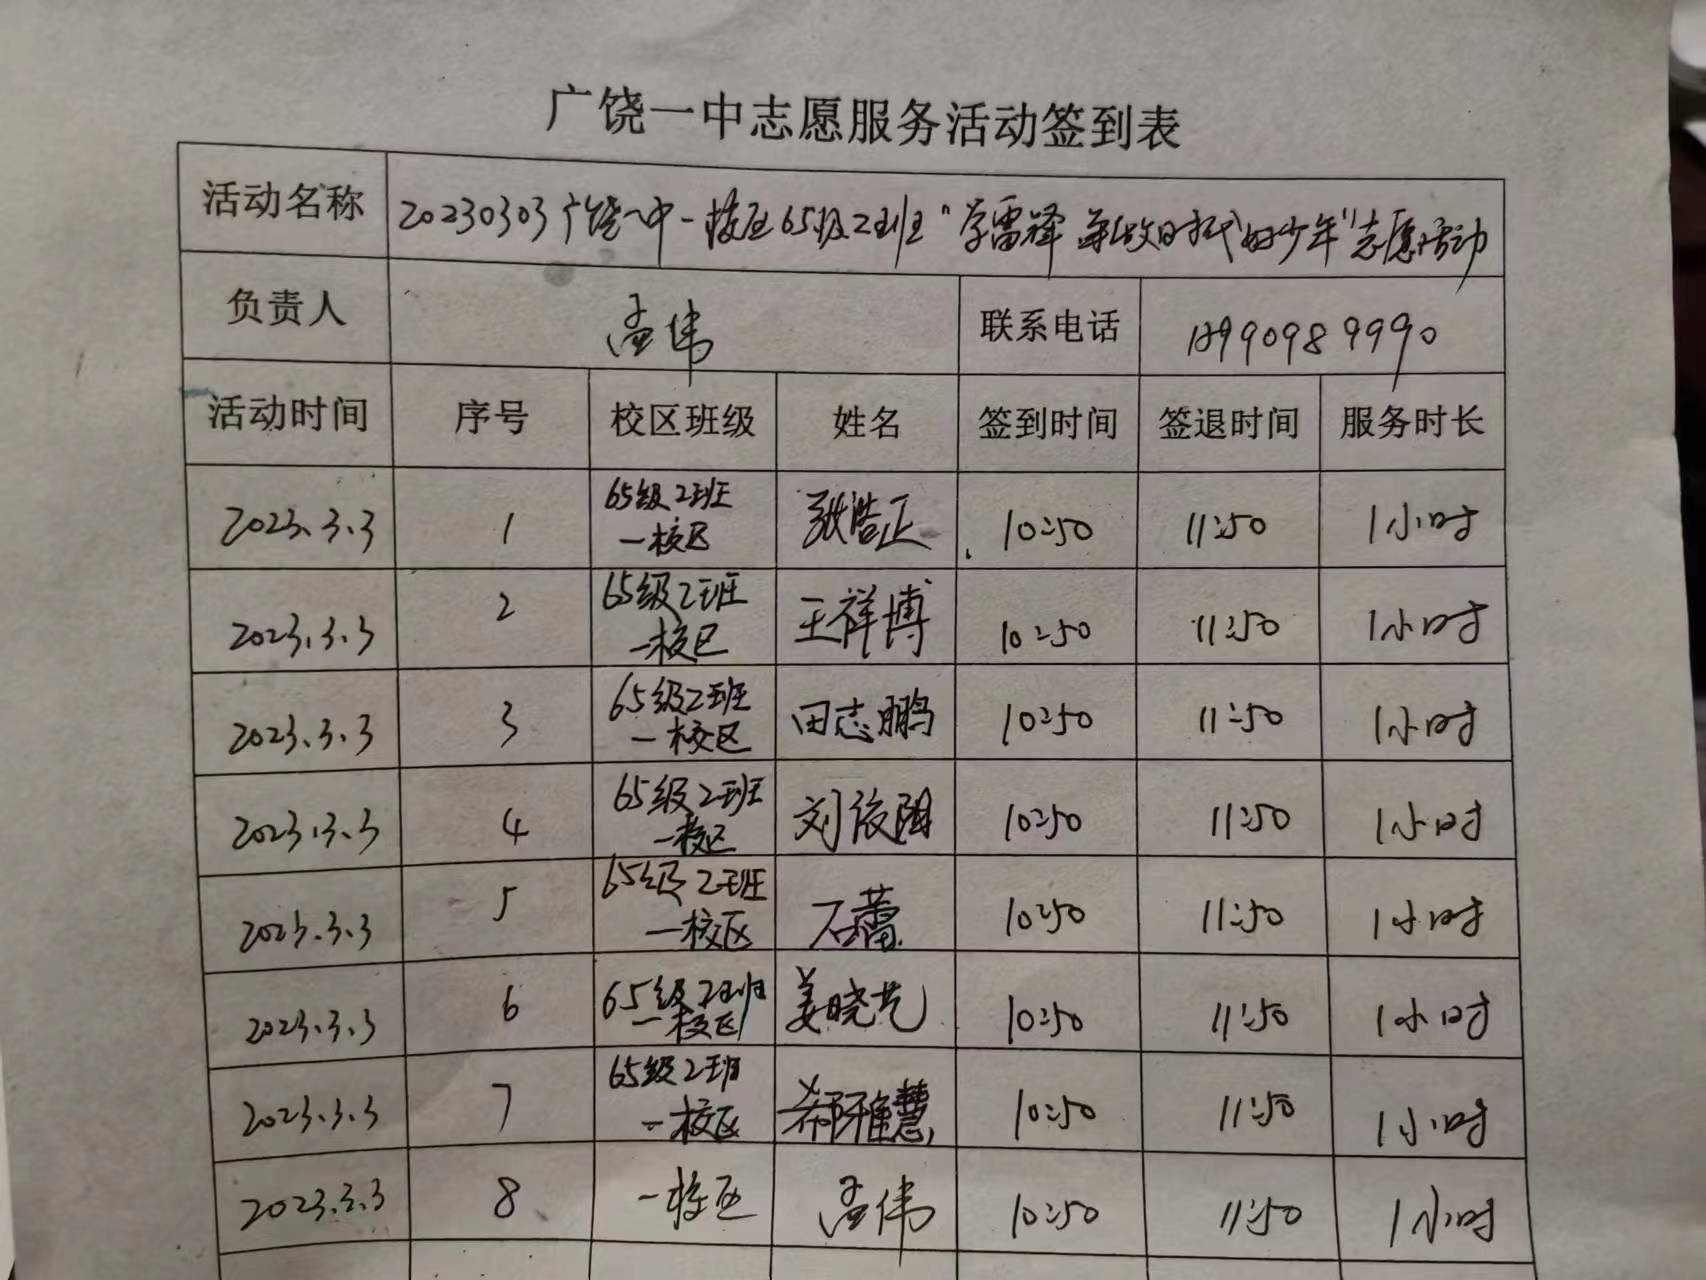 广饶一中志愿服务活动签到表
活动名称 20230303广饶一中一校区65级2班"学雷锋 争做时代好少年"志愿活动
负责人 孟伟 联系电话
活动时间 序号 校区班级 姓名 签到时间 签退时间 服务时长
65级2班
2023.3.3 1 一校区 张浩正 10:50 11:50 1小时
65级2班
2023.3.3 2 一校区 王祥博 10:50 11:50 1小时
65级2班
2023.3.3 3 一校区 田志鹏 10:50 11:50 1小时
65级2班
2023.3.3 4 一校区 刘 10:50 11:50 1小时
65级2班
2023.3.3 5 一校区 石蕾 10:50 11:50 1小时
65级2班
2023.3.3 6 一校区 姜晓艺 10:50 11:50 1小时
65级2班
2023.3.3 7 一校区 10:50 11:50 1小时
2023.3.3 8 一校区 孟伟 10:50 11:50 1小时